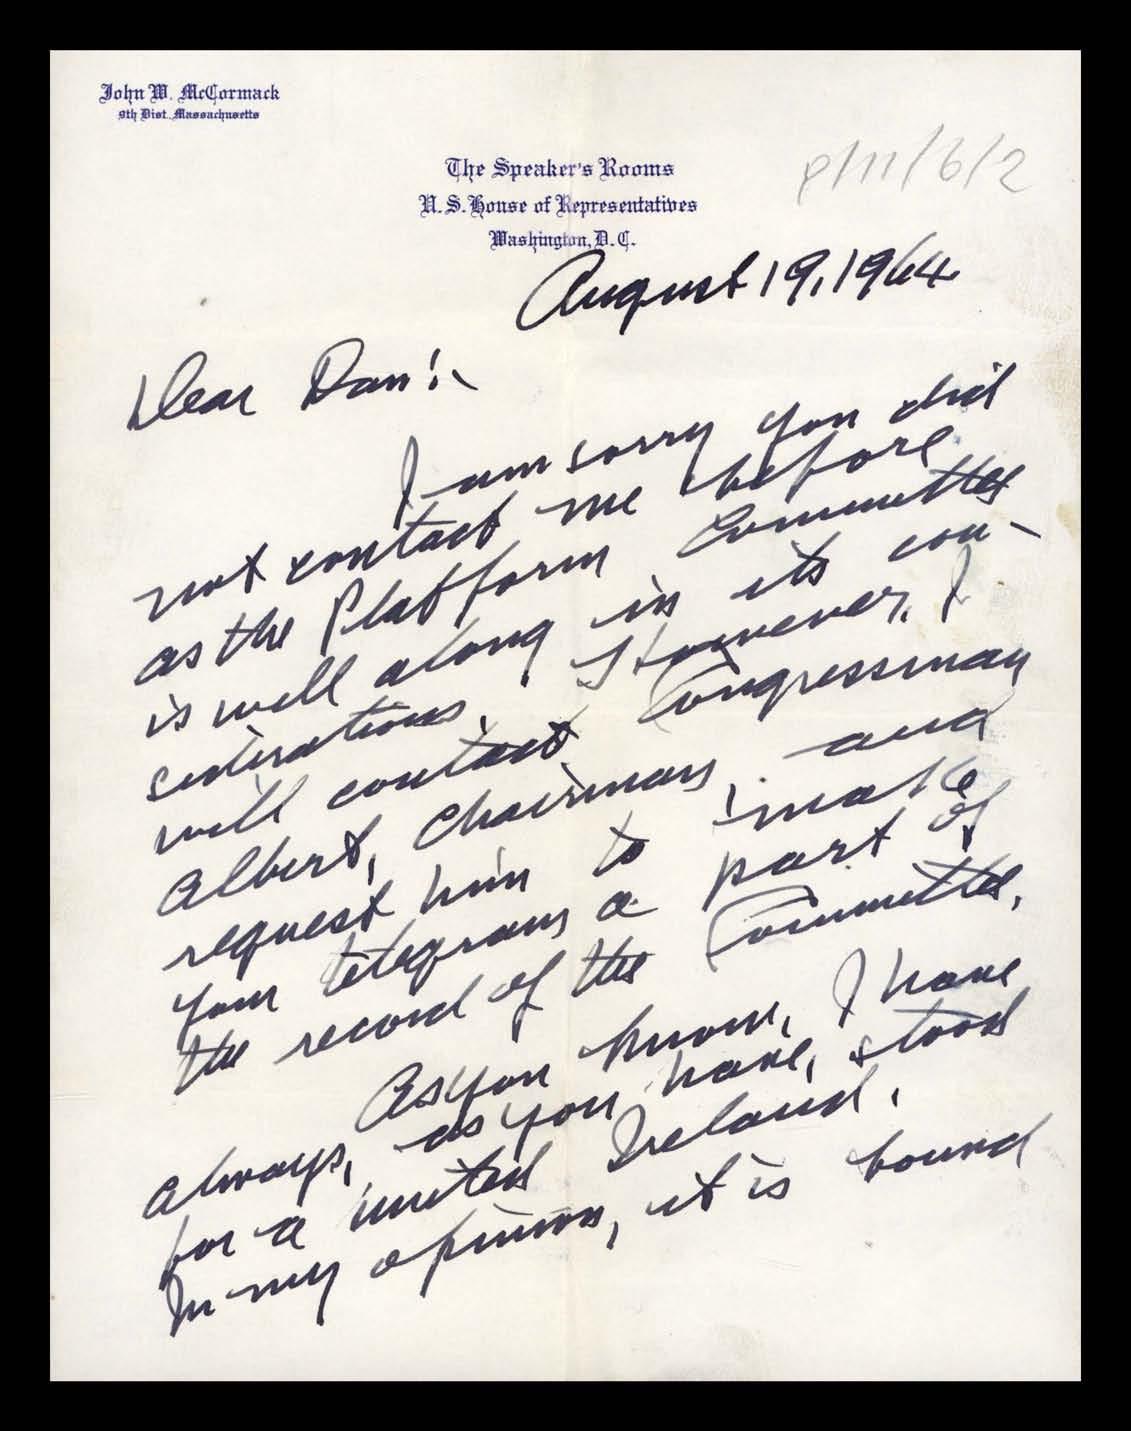 John W. McCormack
9th Dist. Massachusetts
The Speaker's Rooms
U.S. House of Representatives
Washington, D.C.
P/11/6/2
August 19, 1964
Dear Dan:-
I am sorry you did
not contact me before
as the Platform Committee
is well along in its con-
siderations. However, I
will contact Congressman
Albert, Chairman, and
request him to make
your telegram a part of
the record of the Committee.
As you know, I have
always, as you have, stood
for a united Ireland.
In my opinion, it is bound